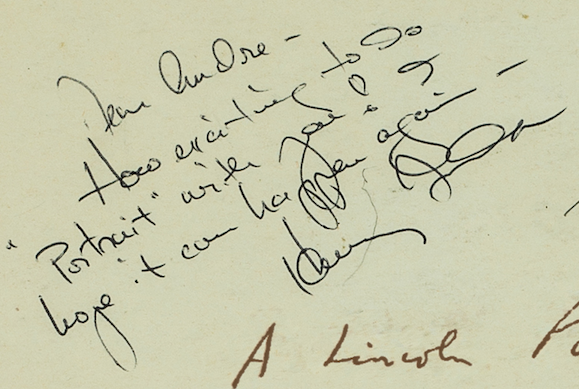 Dear Andre –
How exciting to do
"Portrait" with you & I
hope it can happen again –
Henry Fonda
A Lincoln